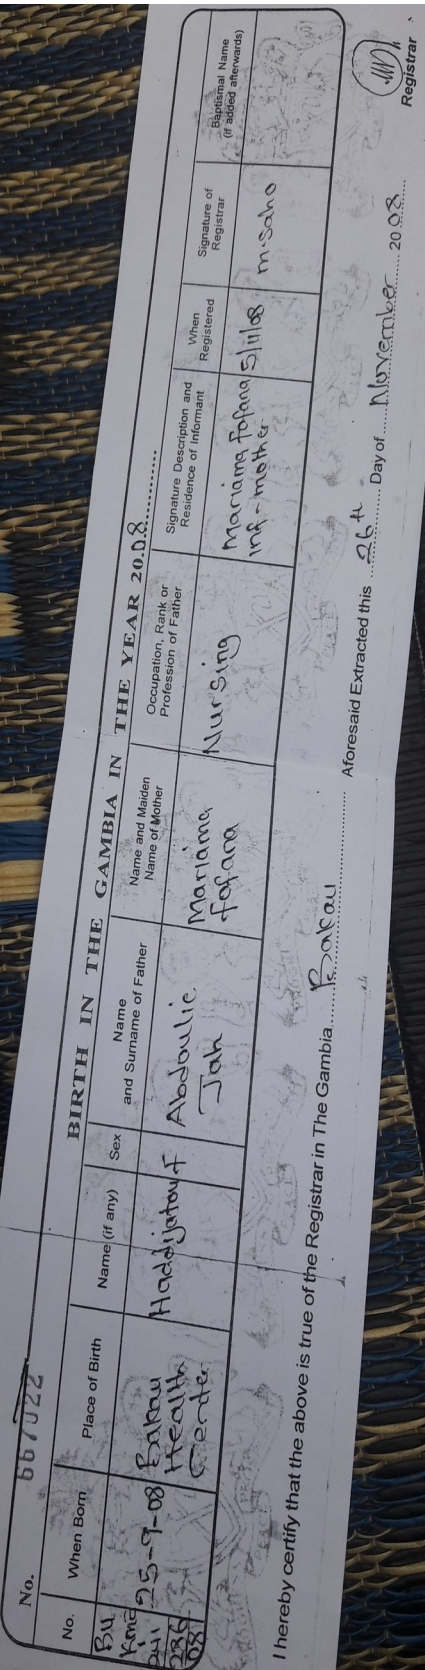 No. 667022
BIRTH IN THE GAMBIA IN THE YEAR 2008
No.
When Born
Place of Birth
Name (if any)
Sex
Name
and Surname of Father
Name and Maiden
Name of Mother
Occupation, Rank or
Profession of Father
Signature Description and
Residence of Informant
When
Registered
Signature of
Registrar
Baptismal Name
(if added afterwards)
25-9-08
Bakau
Health
Center
Haddijatou
F
Abdoulie
Jah
Mariama
Fofana
Nursing
Mariama Fofana
inf - mother
5/11/08
M. Saho
I hereby certify that the above is true of the Registrar in The Gambia Bakau Aforesaid Extracted this 26th Day of November 2008
Registrar